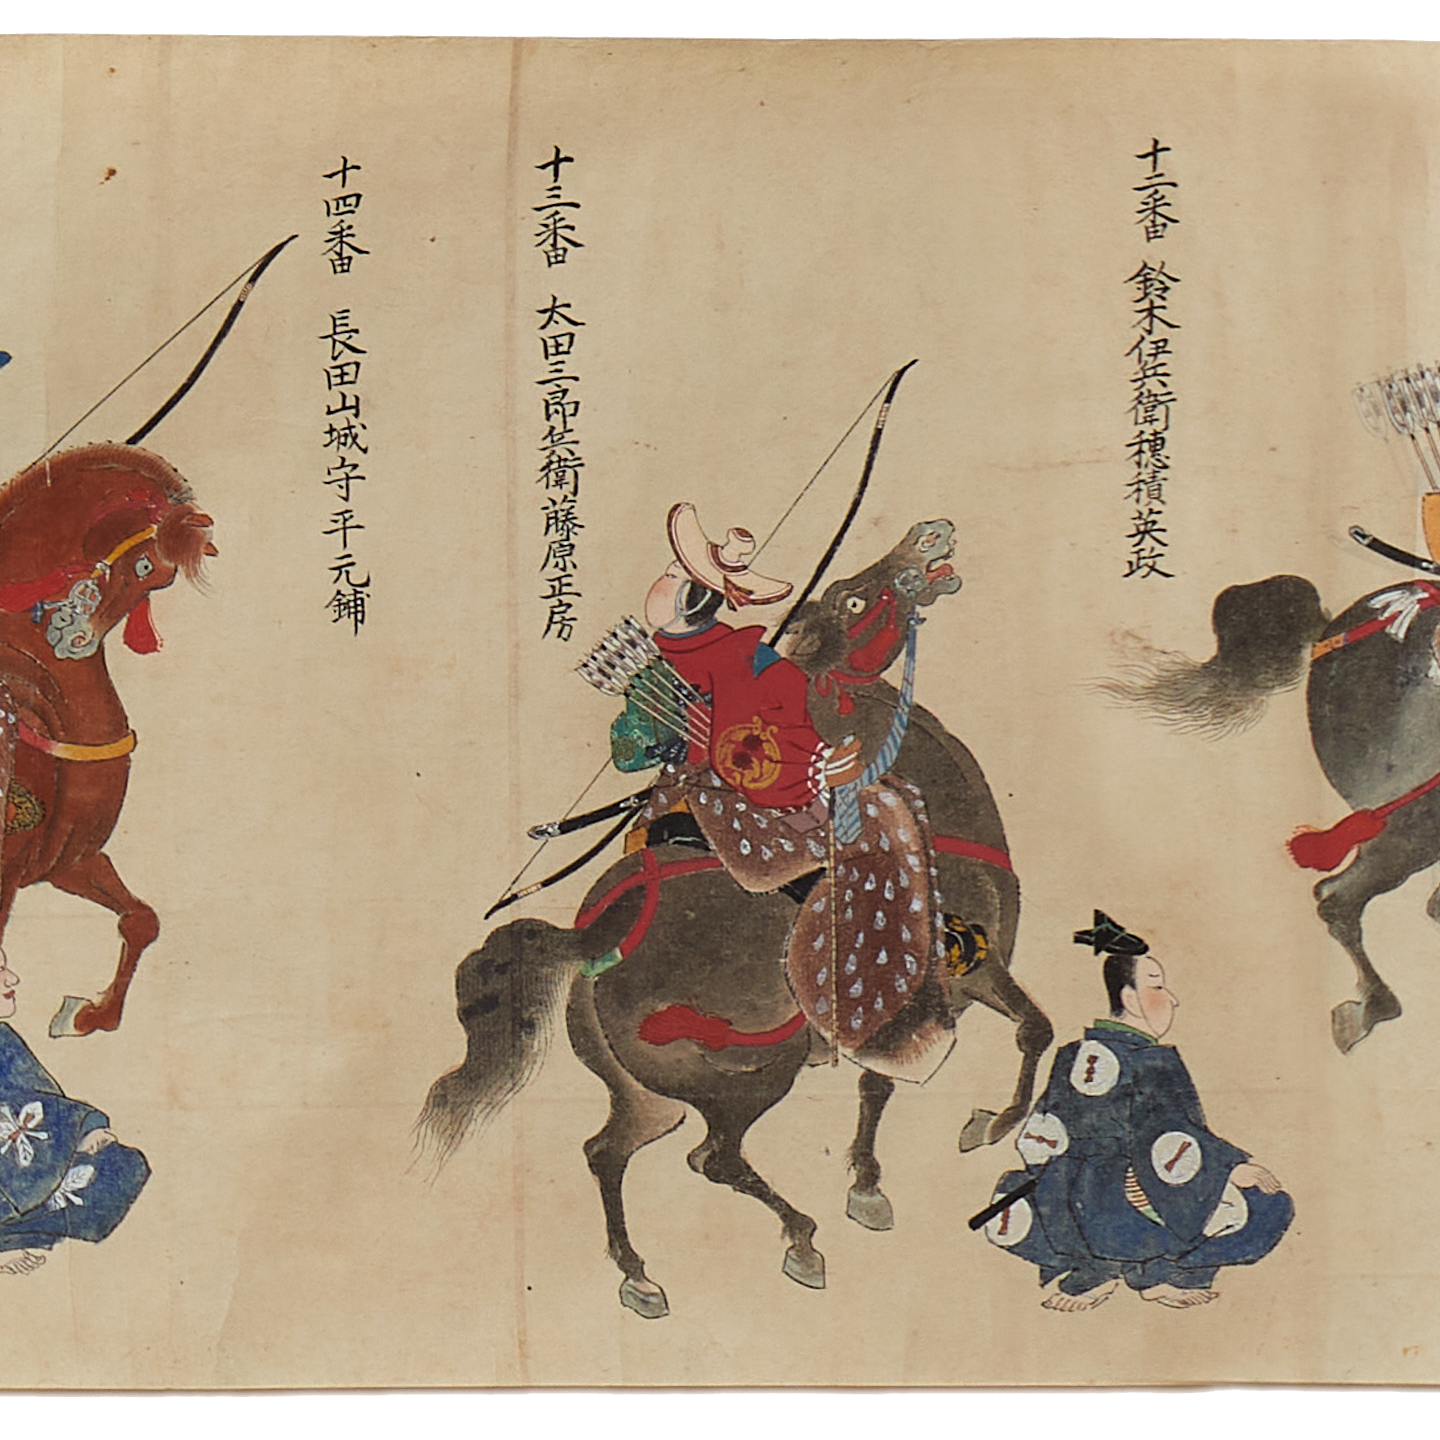 十二番 鈴木伊兵衛穂積英政
十三番 太田三郎兵衛藤原正房
十四番 長田山城守平元鋪